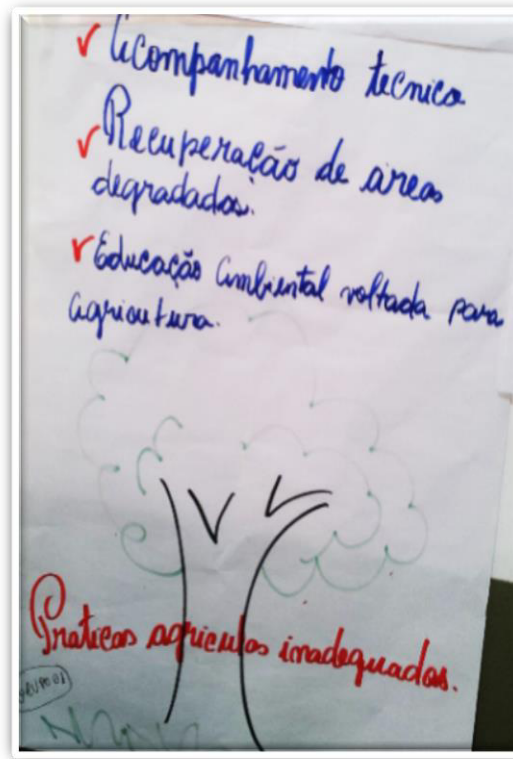 ✓ Acompanhamento tecnico
✓ Recuperação de areas
degradadas.
✓ Educação ambiental voltada para
agricutura.
Praticas agriculas inadequadas.